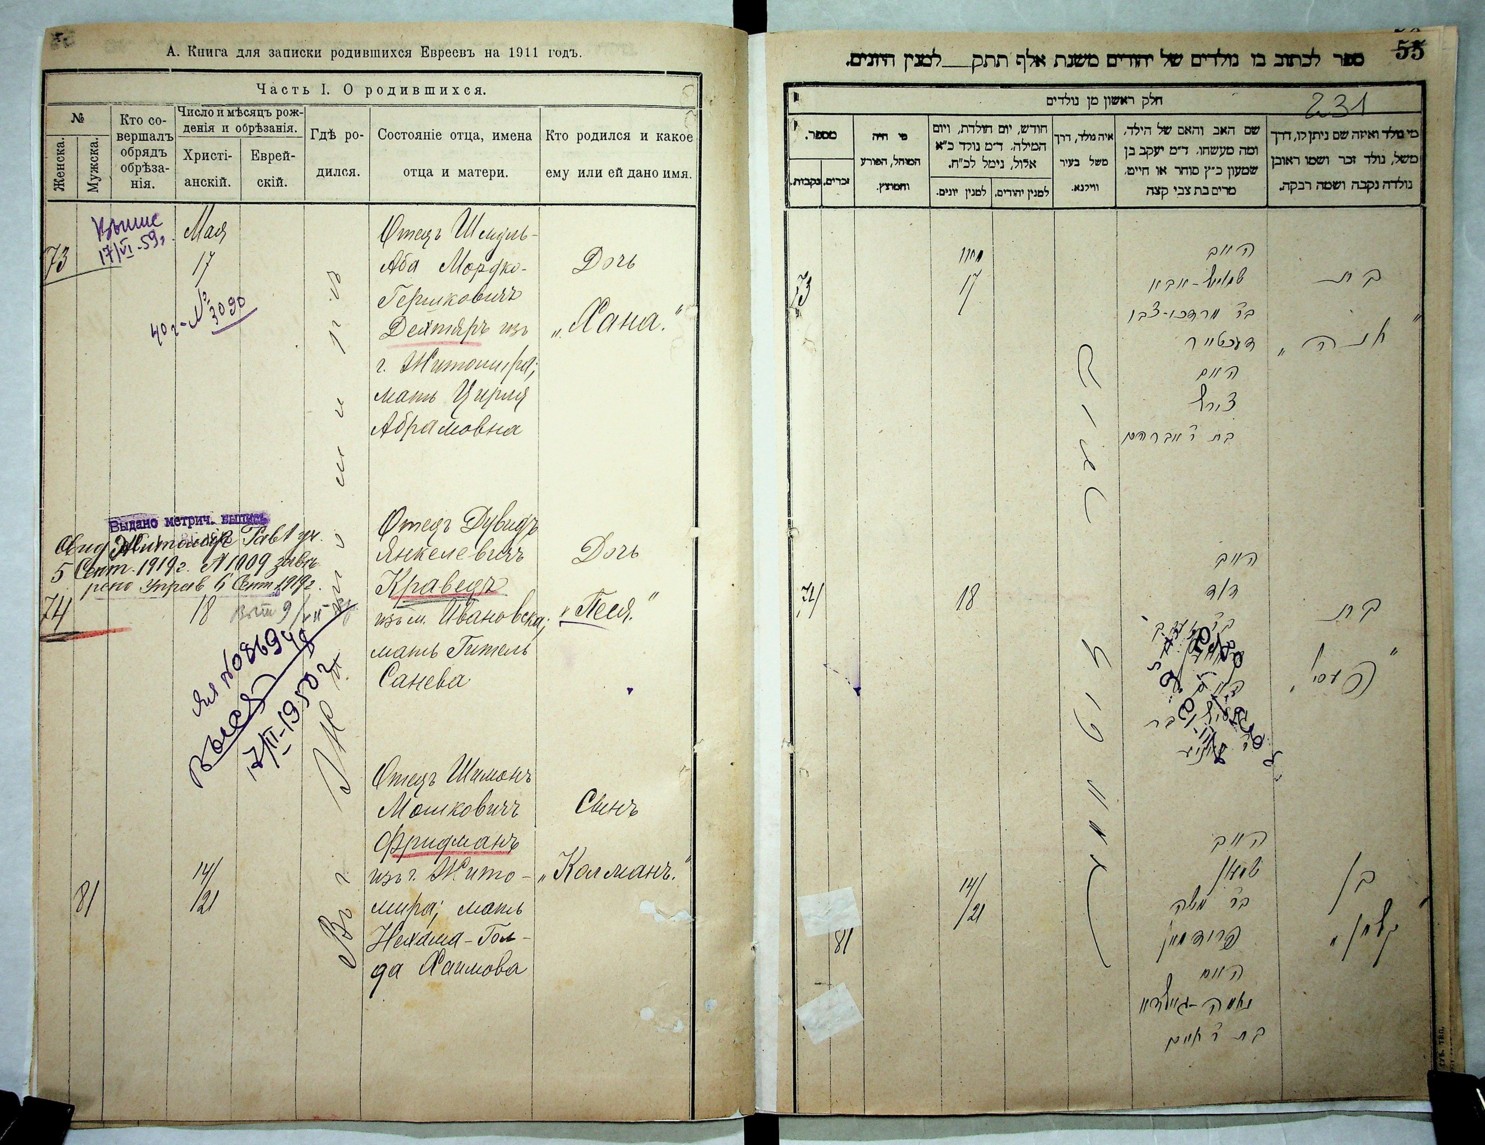 А. Книга для записки родившихся Евреевъ на 1911 годъ.
Часть I. О родившихся.
№
Женска.
Мужска.
Кто со-
вершалъ
обрядъ
обрѣза-
нія.
Число и мѣсяцъ рож-
денія и обрѣзанія.
Христі-
анскій.
Еврей-
скій.
Гдѣ ро-
дился.
Состояніе отца, имена
отца и матери.
Кто родился и какое
ему или ей дано имя.
73
17/VI-59г.
40г-№
3090
Мая
17
Отецъ Шмуль-
Аба Мордко-
Гершковичъ
Дехтяръ изъ
г. Житомира;
мать Цирля
Абрамовна
Дочь
„Хана.“
Выдано метрич. выпись
5 Сент. 1919г. № 1009
74
18
17/III-1950г
Отецъ Дувидъ
Янкелевичъ
Кравецъ
изъ м. Ивановска;
мать Гитель
Санева
Дочь
„Песя.“
81
14/
/21
Отецъ Шимонъ
Мошковичъ
Фридманъ
изъ г. Жито-
мира; мать
Нехама-Гол-
да Хаимова
Сынъ
„Калманъ.“
Въ г. Житомирѣ
55
ספר לכתוב בו נולדים של יהודים משנת אלף תתק__למנין היונים.
חלק ראשון מן נולדים
231
מספר.
נקבות.
זכרים.
מי היה
המוהל, הפורע
והמוצץ.
חודש, יום הולדת, ויום
המילה. ד״מ נולד כ״א
אלול, נימל לכ״ח.
למנין יונים.
למנין יהודים.
איה נולד, דרך
משל בעיר
ווילנא.
שם האב והאם של הילד,
ומה מעשהו. ד״מ יעקב בן
שמעון כ״ץ סוחר או חייט,
מרים בת צבי קצה
מי נולד ואיזה שם ניתן לו, דרך
משל, נולד זכר ושמו ראובן
נולדה נקבה ושמה רבקה.
73
מאי
17
האב
שמואל-אבא
בר מרדכי-צבי
דעכטיער
האם
צירל
בת ר׳ אברהם
בת
„חנה“
74
18
האב
דוד
בת
„פעסי“
81
14/
/21
האב
שמעון
בר משה
פרידמאן
האם
נחמה-גאלדא
בת ר׳ חיים
בן
„קלמן“